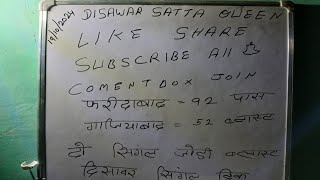 19/10/2024
DISAWAR SATTA QUEEN
LIKE SHARE
SUBSCRIBE All
COMENTBOX JOIN
फरीदाबाद = 92 पास
गाजियाबाद = 52 ब्लास्ट
दो सिंगल जोड़ी ब्लास्ट
दिसावर सिंगल